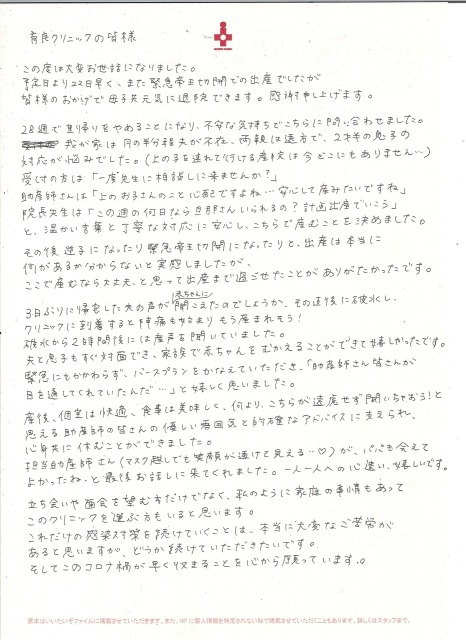 育良クリニックの皆様
この度は大変お世話になりました。
予定日より22日早く、また緊急帝王切開での出産でしたが
皆様のおかげで母子共元気に退院できます。感謝申し上げます。
28週で里帰りをやめることになり、不安な気持ちでこちらに問い合わせました。
我が家は月の半分程夫が不在、両親は遠方で、2才半の息子の
対応が悩みでした。(上の子を連れて行ける産院は今どこにもありません…)
受付の方は「一度先生に相談しに来ませんか?」
助産師さんは「上のお子さんのこと心配ですよね…安心して産みたいですね」
院長先生は「この週の何日なら旦那さんいられるの?計画出産でいこう」
と、温かい言葉と丁寧な対応に安心し、こちらで産むことを決めました。
その後逆子になったり緊急帝王切開になったりと、出産は本当に
何があるか分からないと実感しましたが、
ここで産むなら大丈夫、と思って出産まで過ごせたことがありがたかったです。
3日ぶりに帰宅した夫の声が赤ちゃんに聞こえたのでしょうか、その直後に破水し、
クリニックに到着すると陣痛も始まりもう産まれそう!
破水から2時間後には産声を聞いていました。
夫と息子もすぐ対面でき、家族で赤ちゃんをむかえることができて嬉しかったです。
緊急にもかかわらず、バースプランをかなえていただき、「助産師さん皆さんが
目を通してくれていたんだ…」と嬉しく思いました。
産後、個室は快適、食事は美味しく、何より、こちらが遠慮せず聞いちゃおう!と
思える助産師の皆さんの優しい雰囲気と的確なアドバイスに支えられ、
心身共に休むことができました。
担当助産師さん(マスク越しでも笑顔が透けて見える…♡)が、パパも会えて
よかったね、と最後お話しに来てくれました。一人一人への心遣い、嬉しいです。
立ち会いや面会を望む方だけでなく、私のように家庭の事情もあって
このクリニックを選ぶ方もいると思います。
これだけの感染対策を続けていくことは、本当に大変なご苦労が
あると思いますが、どうか続けていただきたいです。
そしてこのコロナ禍が早く収まることを心から願っています。
原本はいいたいぞファイルに掲載させていただきます。また、HPに個人情報を特定されない形で掲載させていただくこともあります。詳しくはスタッフまで。